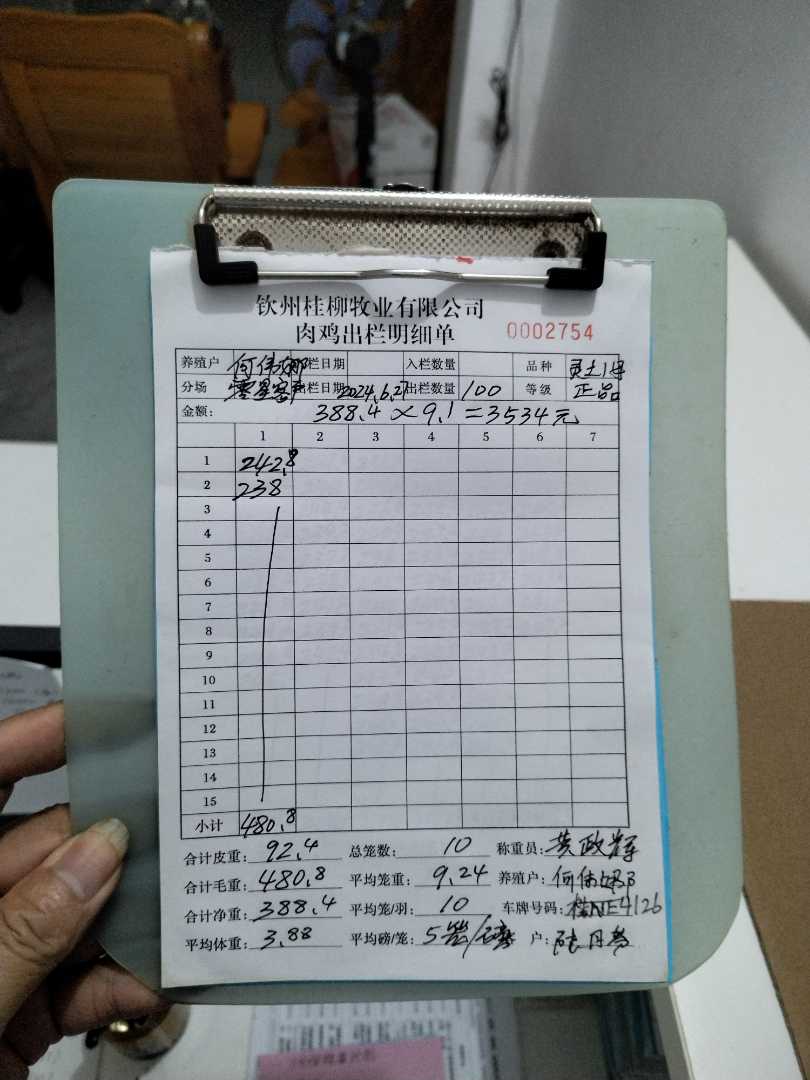 钦州桂柳牧业有限公司
肉鸡出栏明细单 0002754
养殖户 何伟娜 栏日期 入栏数量 品种 灵土1号
分场 零星客户 出栏日期 2024.6.27 出栏数量 100 等级 正品
金额: 388.4×9.1=3534元
1 2 3 4 5 6 7
1 242.8
2 238
3
4
5
6
7
8
9
10
11
12
13
14
15
小计 480.8
合计皮重: 92.4 总笼数: 10 称重员: 黄政辉
合计毛重: 480.8 平均笼重: 9.24 养殖户: 何伟娜
合计净重: 388.4 平均笼/羽: 10 车牌号码: 桂NE4126
平均体重: 3.88 平均磅/笼: 5笼/磅 户: 陆月